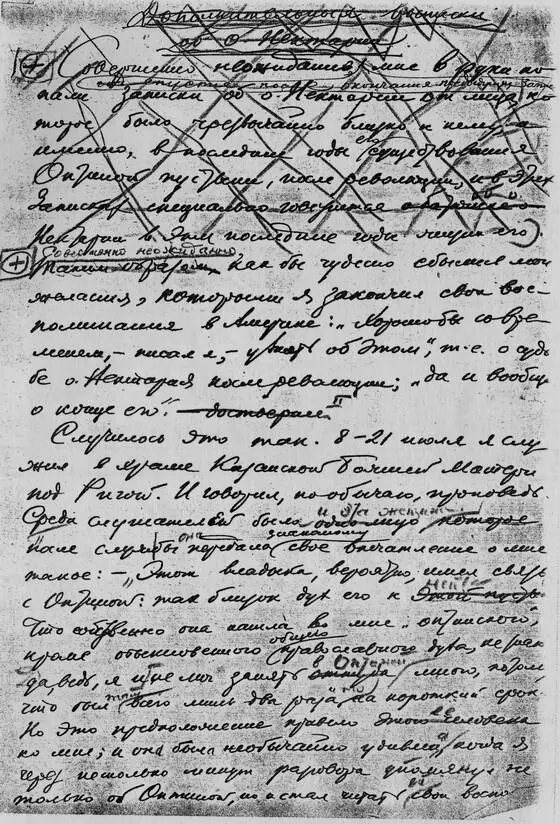 Дополнительные записки
об о. Нектарии
Совершенно неожиданно, мне в руки по-
пали записки об о. Нектарии от лица, ко-
торое было чрезвычайно близко к нему, а
именно, в последние годы существования
Оптиной пустыни, после революции, и в этих
записках специально говорится
Нектарии в эти последние годы жизни его).
Совершенно неожиданно
Таким образом, как бы чудесно сбылся мои
желания, которыми я закончил свои вос-
поминания в Америке: "Хорошо бы со вре-
менем, – писал я, – узнать об этом", т.е. о судь-
бе о. Нектария после революции; "да и вообще
о конце его".
Случилось это так. 8–21 июля я слу-
жил в храме Казанской Божией Матери
под Ригой. И говорил, по обычаю, проповедь
и эта женщина
Среди слушателей было одно лицо, которое
она знакомому
после службы передала свое впечатление о мне
такое: – "Этот владыка, вероятно, имел связь
с Оптиной: так близок дух его к
Что собственно она нашла во мне "оптинского",
общего
кроме обыкновенного православного духа, не
в Оптиной
да, ведь, я и не мог занять много, потом
там
что был всего лишь два раза, на короткий срок.
Но это предположение привело этого человека
ко мне; и она была необычайно удивлена, когда я
через несколько минут разговора упомянул не
только об Оптиной, но и стал читать свои воспо